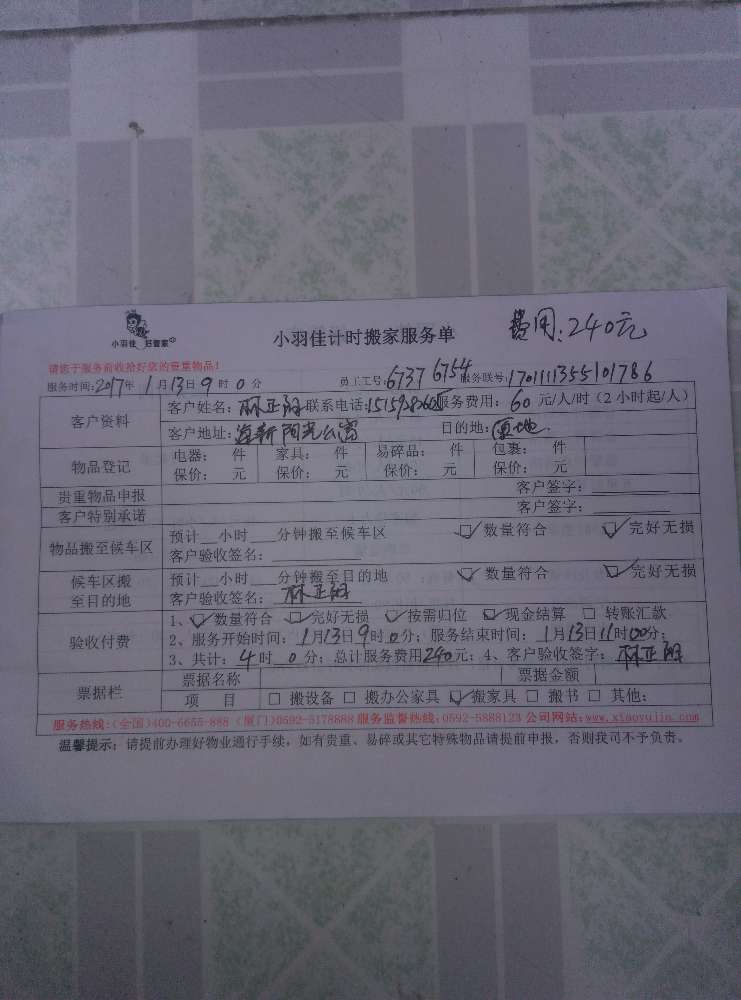 小羽佳 好管家
小羽佳计时搬家服务单 费用:240元
请您于服务前收拾好您的贵重物品!
服务时间:2017年1月13日9时0分 员工工号:6737 6754 服务联号:1701111355101786
客户资料 客户姓名: 联系电话: 服务费用:60元/人/时(2小时起/人)
客户地址:海新阳光公寓 目的地:原地.
物品登记 电器: 件 家具: 件 易碎品: 件 包裹: 件
保价: 元 保价: 元 保价: 元 保价: 元
贵重物品申报 客户签字:
客户特别承诺 客户签字:
物品搬至候车区 预计__小时___分钟搬至候车区 ☑数量符合 ☑完好无损
客户验收签名:
候车区搬至目的地 预计__小时___分钟搬至目的地 ☑数量符合 ☑完好无损
客户验收签名:
验收付费 1、☑数量符合 ☑完好无损 ☑按需归位 ☑现金结算 □转账汇款
2、服务开始时间:1月13日9时0分;服务结束时间:1月13日11时00分;
3、共计:4时0分;总计服务费用240元;4、客户验收签字:
票据栏 票据名称 票据金额
项 目 □搬设备 □搬办公家具 ☑搬家具 □搬书 □其他:
服务热线:(全国)400-6655-888 (厦门)0592-5178888 服务监督热线:0592-5888123 公司网站:www.xiaoyujia.com
温馨提示:请提前办理好物业通行手续,如有贵重、易碎或其它特殊物品请提前申报,否则我司不予负责。